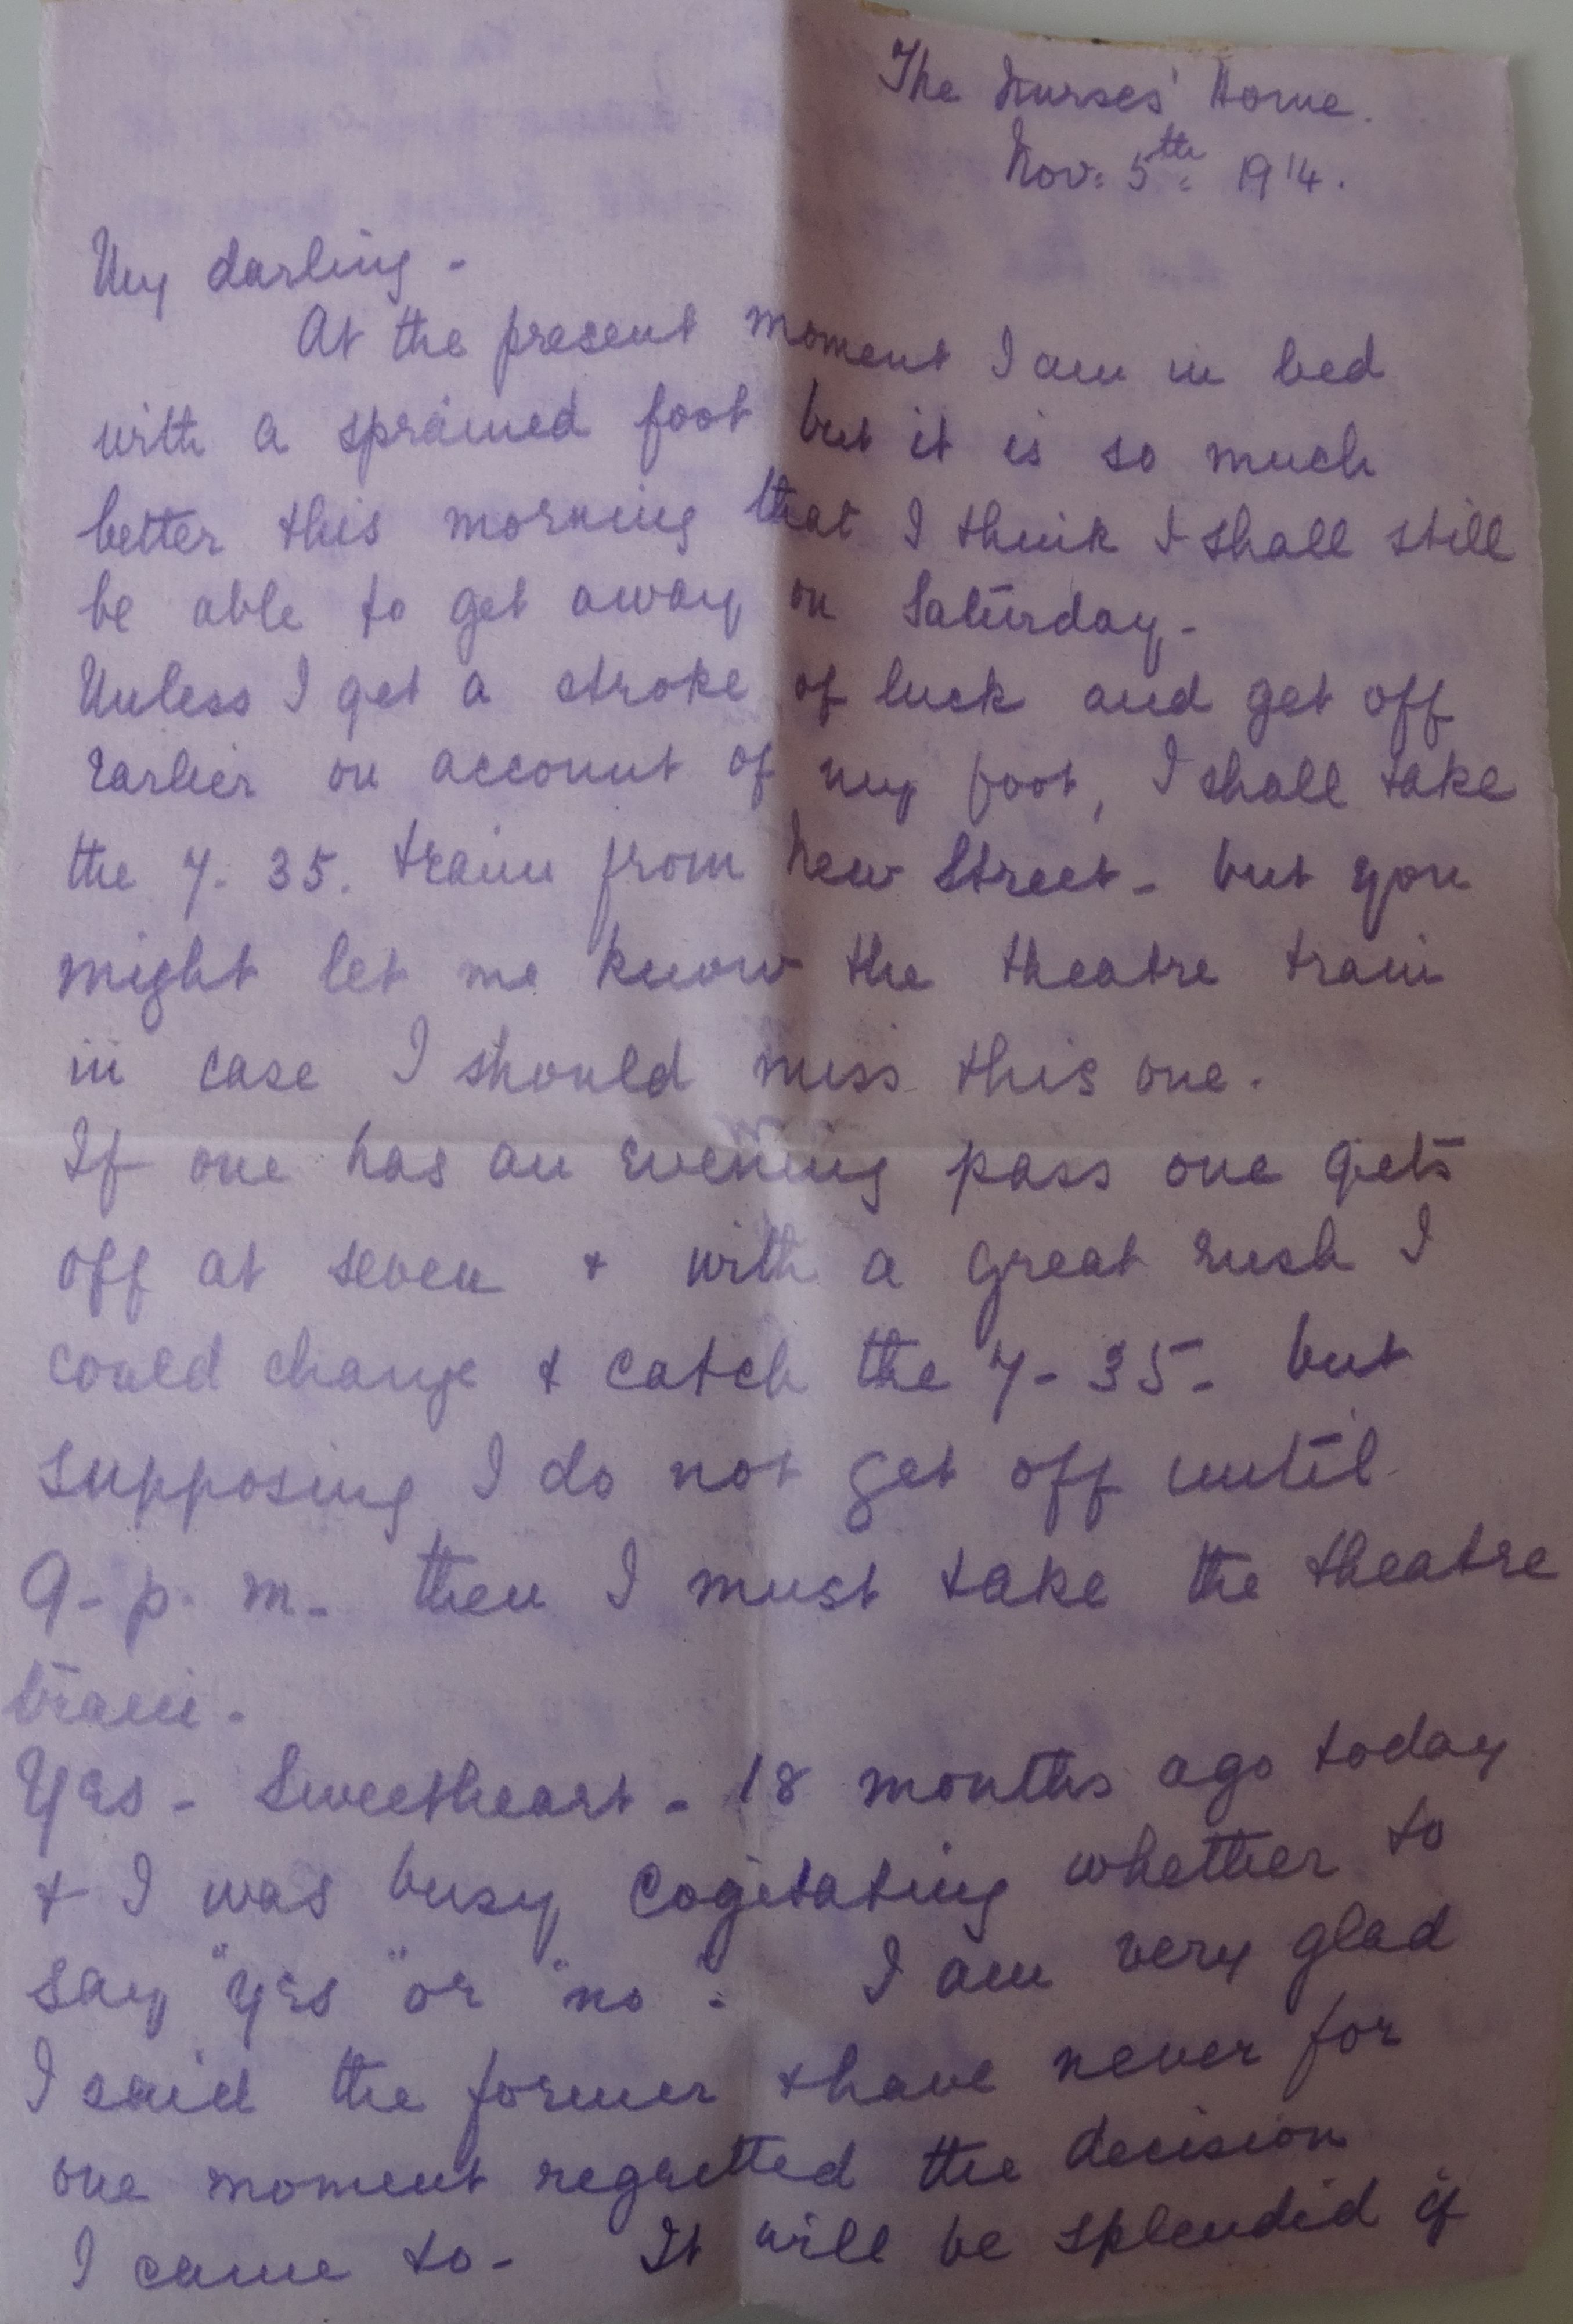 The Nurses' Home.
Nov: 5th: 1914.
My darling -
At the present moment I am in bed
with a sprained foot but it is so much
better this morning that I think I shall still
be able to get away on Saturday -
Unless I get a stroke of luck and get off
earlier on account of my foot, I shall take
the 7-35. train from New Street - but you
might let me know the theatre train
in case I should miss this one.
If one has an evening pass one gets
off at seven + with a great rush I
could change + catch the 7-35 - but
supposing I do not get off until
9-p.m. then I must take the theatre
train -
Yes - Sweetheart - 18 months ago today
+ I was busy cogitating whether to
say "yes" or "no". I am very glad
I said the former + have never for
one moment regretted the decision
I came to - It will be splendid if